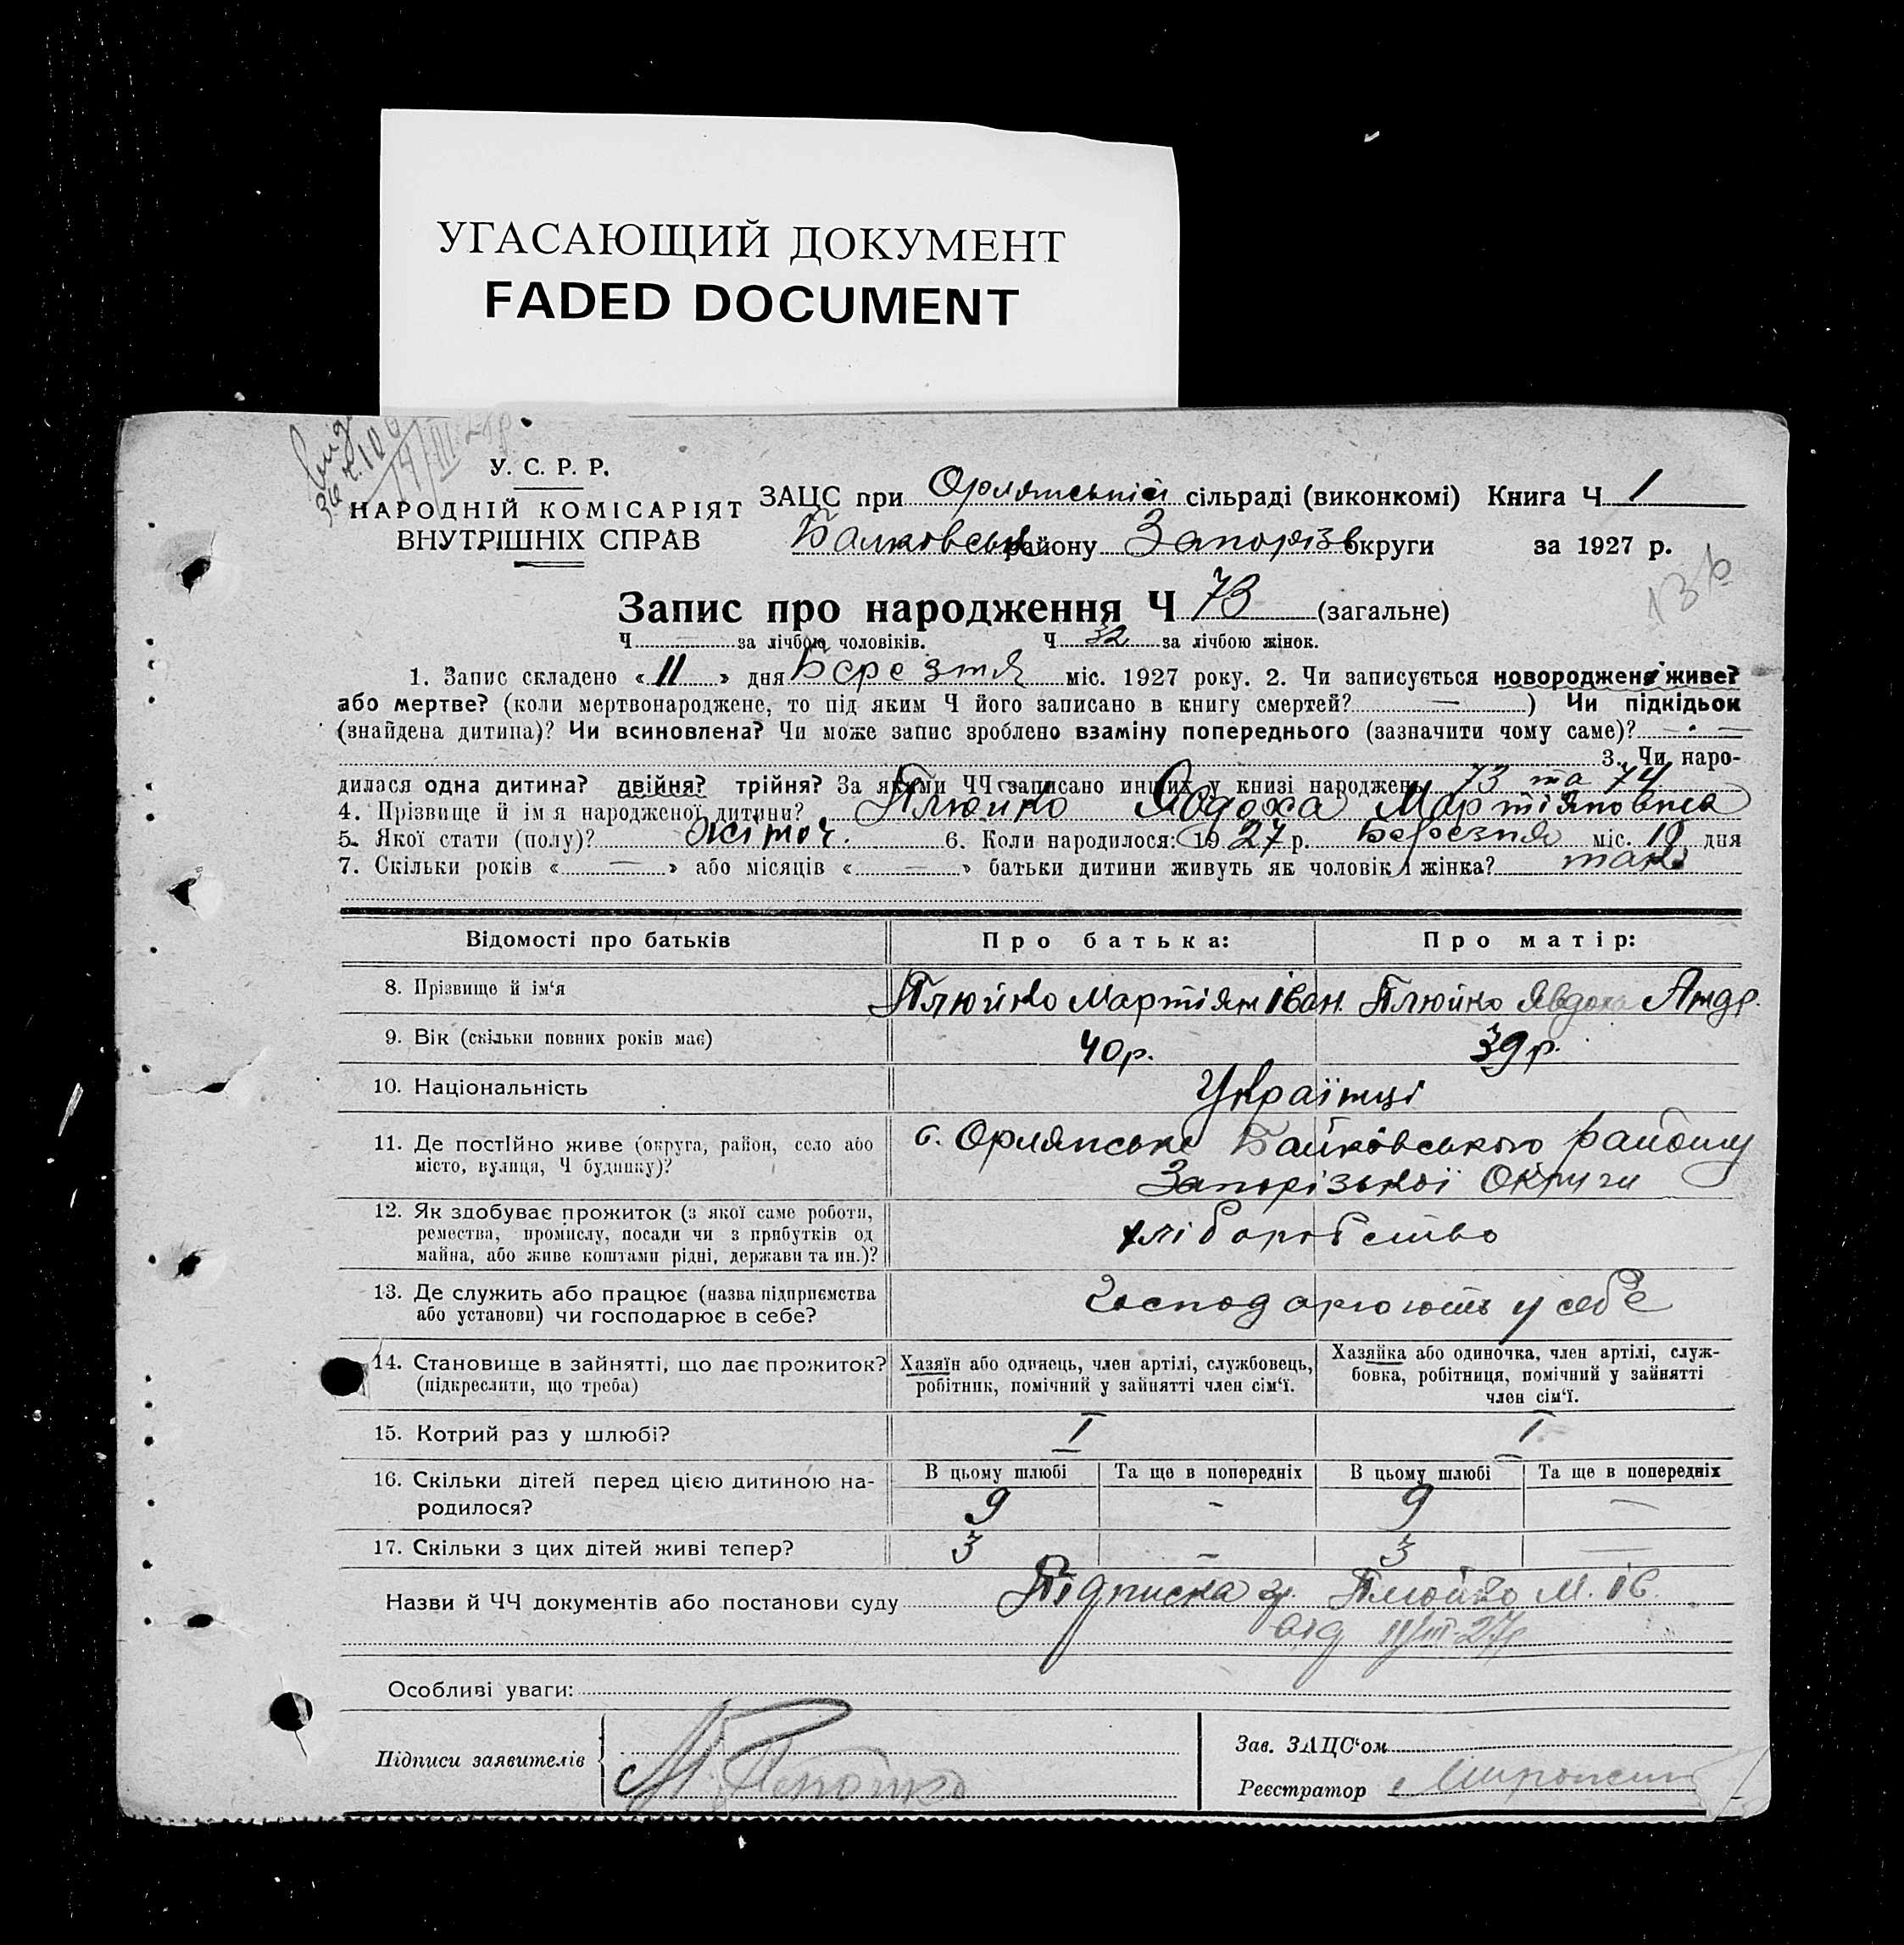 УГАСАЮЩИЙ ДОКУМЕНТ
FADED DOCUMENT
У. С. Р. Р.
НАРОДНІЙ КОМІСАРІЯТ
ВНУТРІШНІХ СПРАВ
ЗАЦС при Орлянській сільраді (виконкомі) Книга Ч 1
Балковськ району Запорізь округи за 1927 р.
Запис про народження Ч 73 (загальне)
Ч — за лічбою чоловіків. Ч 32 за лічбою жінок.
1. Запис складено « 11 » дня Березня міс. 1927 року. 2. Чи записується новороджене живе?
або мертве? (коли мертвонароджене, то під яким Ч його записано в книгу смертей? — ) Чи підкідьок
(знайдена дитина)? Чи всиновлена? Чи може запис зроблено взаміну попереднього (зазначити чому саме)? —
3. Чи наро-
дилася одна дитина? двійня? трійня? За якими ЧЧ записано инших у книзі народжень 73 та 74
4. Прізвище й ім я народженої дитини? Плюйко Явдоха Мартіяновна
5. Якої стати (полу)? жіноч. 6. Коли народилося: 1927 р. Березня міс. 10 дня
7. Скільки років « — » або місяців « — » батьки дитини живуть як чоловік і жінка? так
Відомості про батьків Про батька: Про матір:
8. Прізвище й ім'я Плюйко Мартіян Іван. Плюйко Явдоха Андр.
9. Вік (скільки повних років має) 40 р. 39 р.
10. Національність Українці
11. Де постійно живе (округа, район, село або
місто, вулиця, Ч будинку)?
с. Орлянське Балковського району
Запорізької Округи
12. Як здобуває прожиток (з якої саме роботи,
ремества, промислу, посади чи з прибутків од
майна, або живе коштами рідні, держави та ин.)?
хліборобство
13. Де служить або працює (назва підприємства
або установи) чи господарює в себе?
Господарюють у себе
14. Становище в зайнятті, що дає прожиток?
(підкреслити, що треба)
Хазяїн або одинець, член артілі, службовець,
робітник, помічний у зайнятті член сім'ї.
Хазяйка або одиночка, член артілі, служ-
бовка, робітниця, помічний у зайнятті
член сім'ї.
15. Котрий раз у шлюбі? I I
16. Скільки дітей перед цією дитиною на-
родилося?
В цьому шлюбі Та ще в попередніх В цьому шлюбі Та ще в попередніх
9 - 9 —
17. Скільки з цих дітей живі тепер? 3 - 3 —
Назви й ЧЧ документів або постанови суду Підписка гр. Плюйко М. Ів.
від 11/III 27р
Особливі уваги:
Підписи заявителів
М. Плюйко
Зав. ЗАЦС'ом
Реєстратор